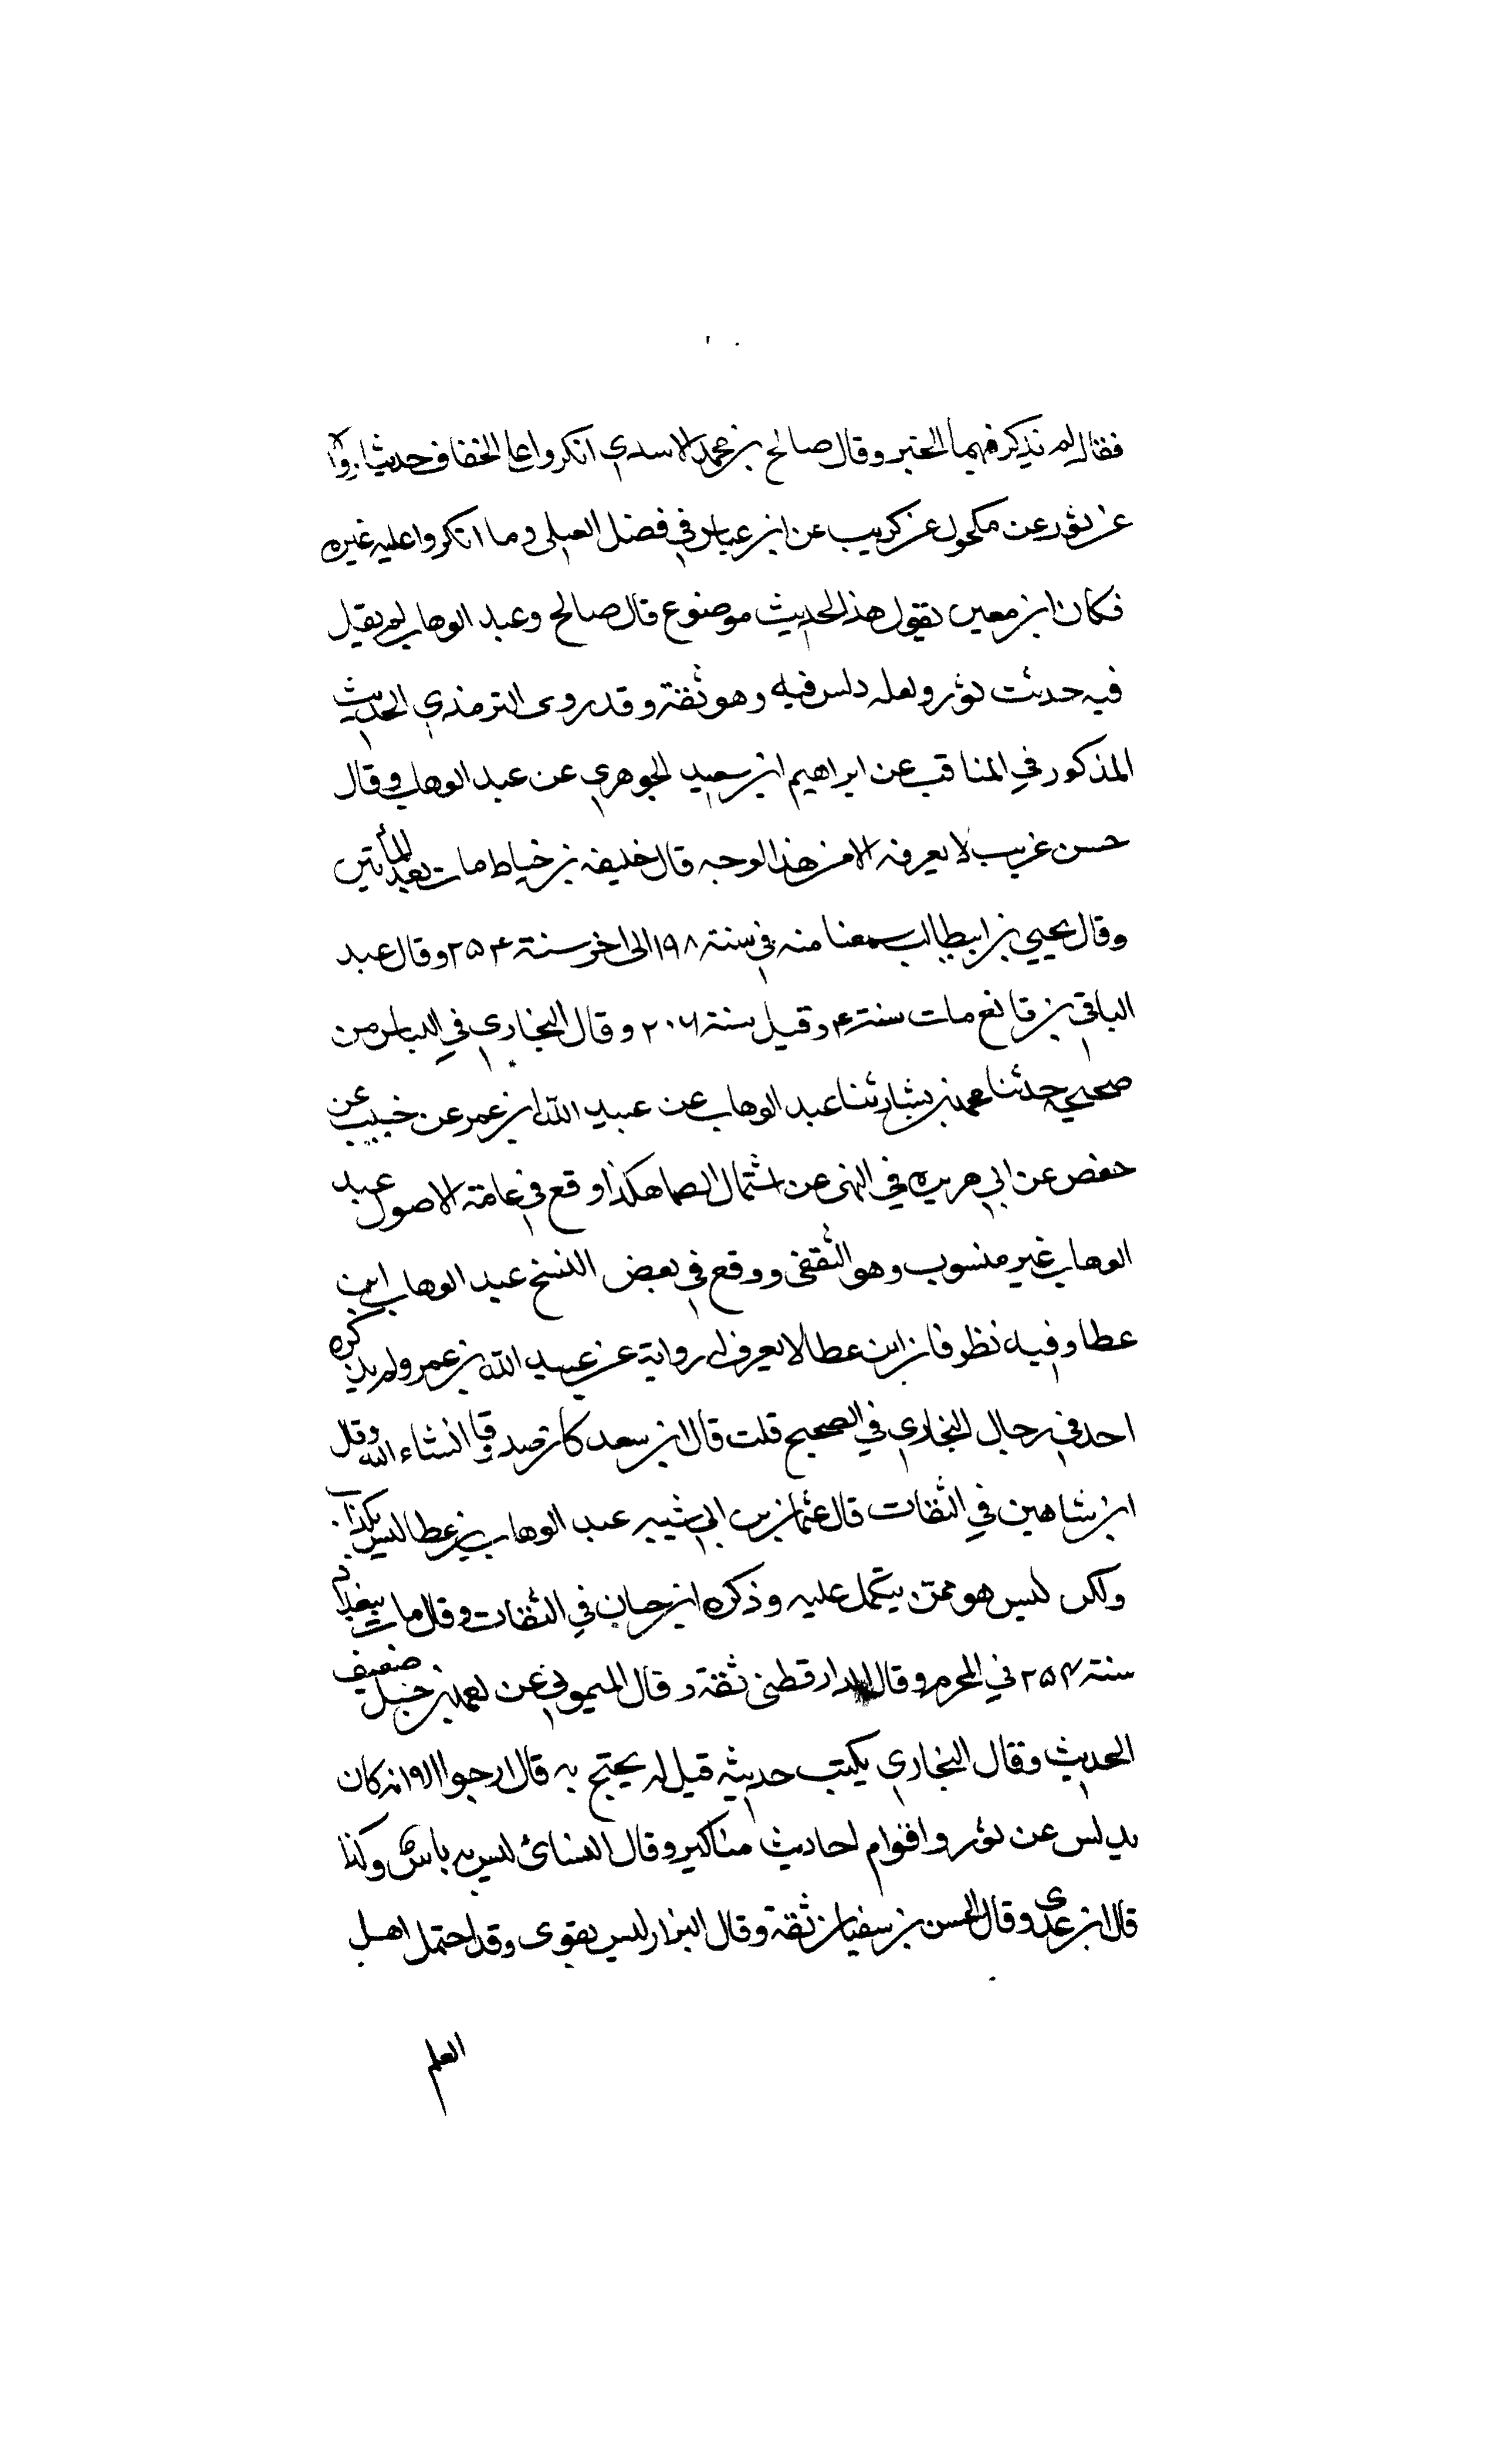 فقال لم نذكر فيهما الخبر وقال صالح بن محمد الاسدي انكروا على الخفاف حديثا رواه
عن ثور عن مكحول عن كريب عن ابن عباس في فضل العباس وما انكروا عليه غيره
فكان ابن معين يقول هذا الحديث موضوع قال صالح وعبد الوهاب لم يقل
فيه حدثت ثور ولعله دلس فيه وهو ثقة وقد روى الترمذي الحديث
المذكور في المناقب عن ابراهيم ابن سعيد الجوهري عن عبد الوهاب وقال
حسن غريب لا يعرفه الا من هذا الوجه قال خليفه بن خياط مات بعد المأتين
وقال يحيي بن ابيطالب سمعنا منه في سنة ١٩٨ الى اخر سنة ٢٥٤ وقال عبد
الباقي بن قانع مات سنة ٤ وقيل سنة ٢٠٦ وقال البخاري في اللباس من
صحيحه حدثنا محمد بن بشار ثنا عبد الوهاب عن عبيد الله ابن عمر عن خبيب عن
حفص عن ابي هريره في النهى عن اشتمال الصما هكذا وقع في عامة الاصول عبد
الوهاب غير منسوب وهو الثقفى ووقع في بعض النسخ عبد الوهاب ابن
عطا وفيه نظر فان ابن عطا لا يعرف له رواية عن عبيد الله بن عمر ولم يذكره
احد في رجال البخاري في الصحيح قلت قال ابن سعد كان صدوقا انشاء الله وقال
ابن شاهين في الثقات قال عثمان بن ابي شيبه عبد الوهاب بن عطا ليس بكذاب
ولكن ليس هو ممن يتكل عليه وذكره ابن حبان في الثقات وقال مات ببغداد
سنة ٢٥٤ في المحرم وقال الدارقطنى ثقة وقال الميموني عن احمد بن حنبل ضعيف
الحديث وقال البخاري يكتب حديثه قيل له يحتج به قال ارجوا الا انه كان
يدلس عن ثور واقوام احاديث مناكير وقال النسائ ليس به باس وكذا
قال ابن عدى وقال الحسن بن سفيان ثقة وقال البزار ليس بقوى وقد احتمل اهل
العلم